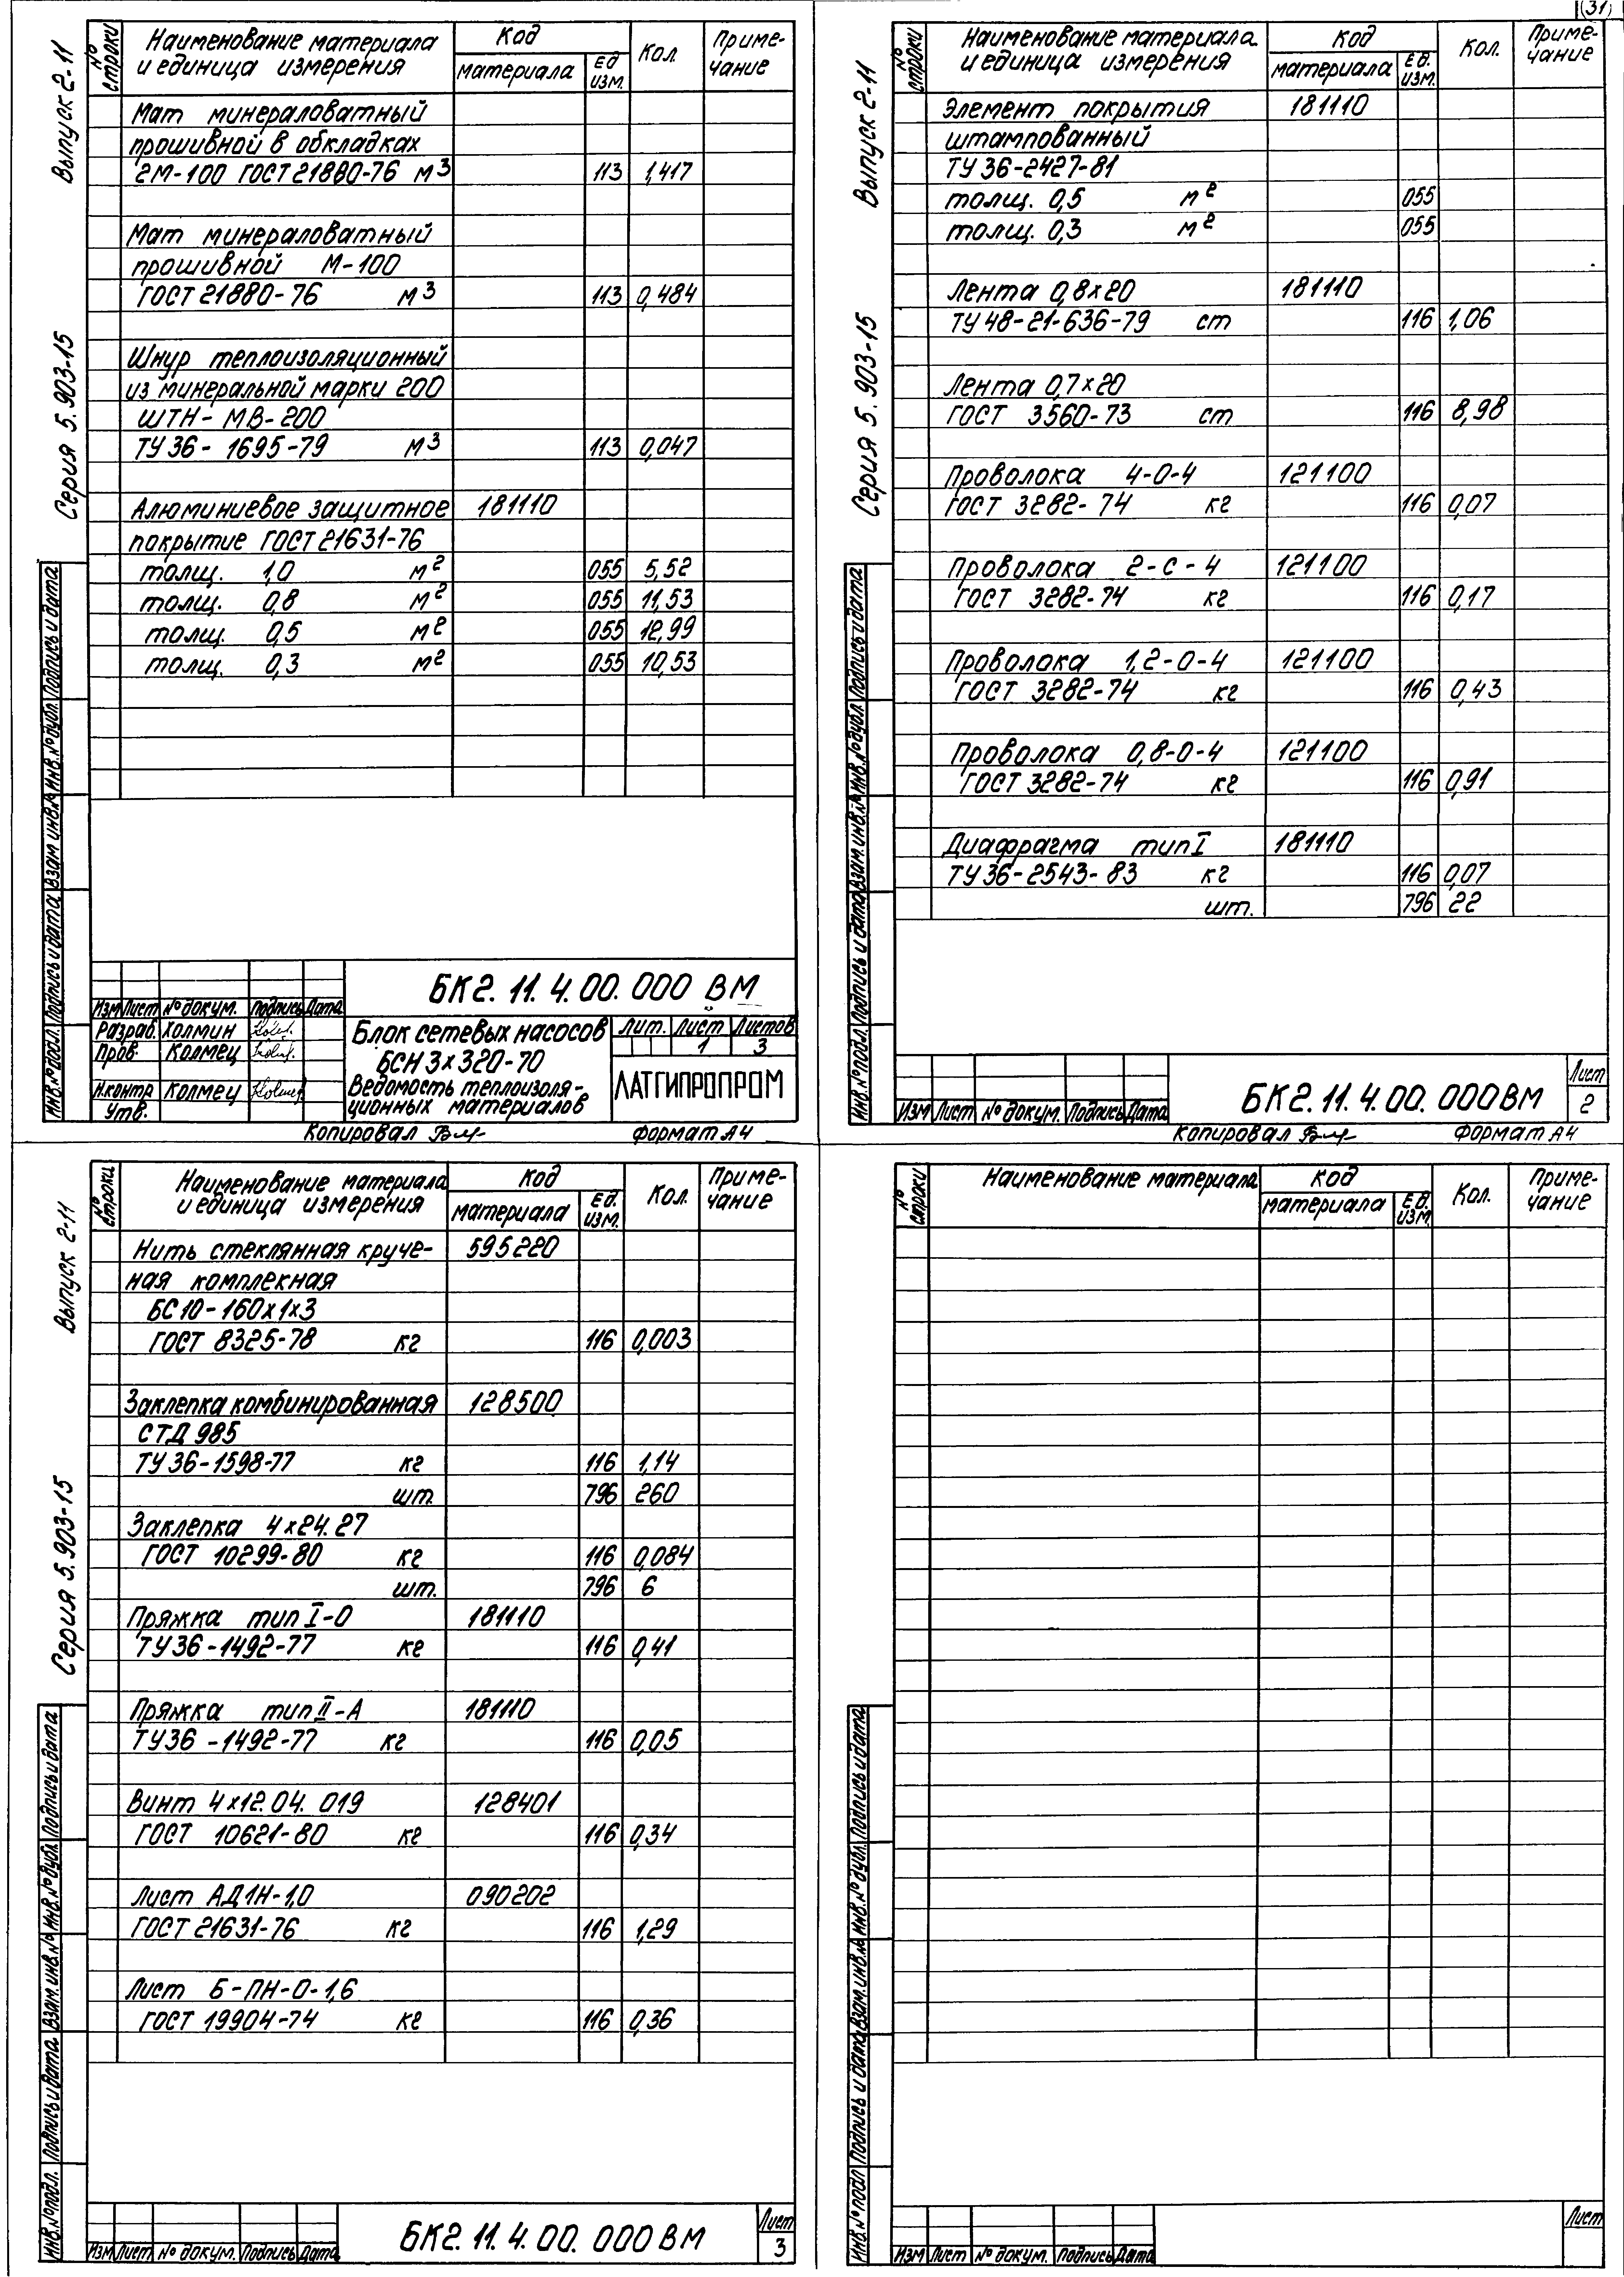 (31)
Выпуск 2-11
Серия 5.903-15
№ строки
Наименование материала и единица измерения
Код
материала
Ед. изм.
Кол.
Приме-
чание
Мат минераловатный
прошивной в обкладках
2М-100 ГОСТ 21880-76 м3 113 1,417
Мат минераловатный
прошивной М-100
ГОСТ 21880-76 м3 113 0,484
Шнур теплоизоляционный
из минеральной марки 200
ШТН-МВ-200
ТУ 36-1695-79 м3 113 0,047
Алюминиевое защитное 181110
покрытие ГОСТ 21631-76
толщ. 1,0 м2 055 5,52
толщ. 0,8 м2 055 11,53
толщ. 0,5 м2 055 12,99
толщ. 0,3 м2 055 10,53
Инв.№подл. Подпись и дата Взам инв.№ Инв.№дубл. Подпись и дата
Изм Лист № докум. Подпись Дата
Разраб. Холмин
Пров. Колмец
Н.контр Колмец
Утв.
БК2.11.4.00.000 ВМ
Блок сетевых насосов
БСН 3х320-70
Ведомость теплоизоля-
ционных материалов
Лит. Лист Листов
1 3
ЛАТГИПРОПРОМ
Копировал
Формат А4
Выпуск 2-11
Серия 5.903-15
№ строки
Наименование материала
и единица измерения
Код
материала
Ед. изм.
Кол.
Приме-
чание
Элемент покрытия 181110
штампованный
ТУ 36-2427-81
толщ. 0,5 м2 055
толщ. 0,3 м2 055
Лента 0,8х20 181110
ТУ 48-21-636-79 ст 116 1,06
Лента 0,7х20
ГОСТ 3560-73 ст 116 8,98
Проволока 4-0-4 121100
ГОСТ 3282-74 кг 116 0,07
Проволока 2-С-4 121100
ГОСТ 3282-74 кг 116 0,17
Проволока 1,2-0-4 121100
ГОСТ 3282-74 кг 116 0,43
Проволока 0,8-0-4 121100
ГОСТ 3282-74 кг 116 0,91
Диафрагма тип I 181110
ТУ 36-2543-83 кг 116 0,07
шт. 796 22
Инв.№подл. Подпись и дата Взам.инв.№ Инв.№дубл. Подпись и дата
Изм Лист № докум. Подпись Дата
БК2.11.4.00.000ВМ
Лист
2
Копировал
Формат А4
Выпуск 2-11
Серия 5.903-15
№ строки
Наименование материала
и единица измерения
Код
материала
Ед. изм.
Кол.
Приме-
чание
Нить стеклянная круче- 595220
ная комплекная
БС10-160х1х3
ГОСТ 8325-78 кг 116 0,003
Заклепка комбинированная 128500
СТД 985
ТУ 36-1598-77 кг 116 1,14
шт. 796 260
Заклепка 4х24.27
ГОСТ 10299-80 кг 116 0,084
шт. 796 6
Пряжка тип I-О 181110
ТУ 36-1492-77 кг 116 0,41
Пряжка тип II-А 181110
ТУ36-1492-77 кг 116 0,05
Винт 4х12.04.019 128401
ГОСТ 10621-80 кг 116 0,34
Лист АД1Н-1,0 090202
ГОСТ 21631-76 кг 116 1,29
Лист Б-ПН-О-1,6
ГОСТ 19904-74 кг 116 0,36
Инв.№подл. Подпись и дата Взам.инв.№ Инв.№дубл. Подпись и дата
Изм Лист № докум. Подпись Дата
БК2.11.4.00.000ВМ
Лист
3
№ строки
Наименование материала
Код
материала
Ед. изм
Кол.
Приме-
чание
Инв.№подл Подпись и дата Взам.инв.№ Инв.№дубл. Подпись и дата
Изм Лист № докум. Подпись Дата
Лист